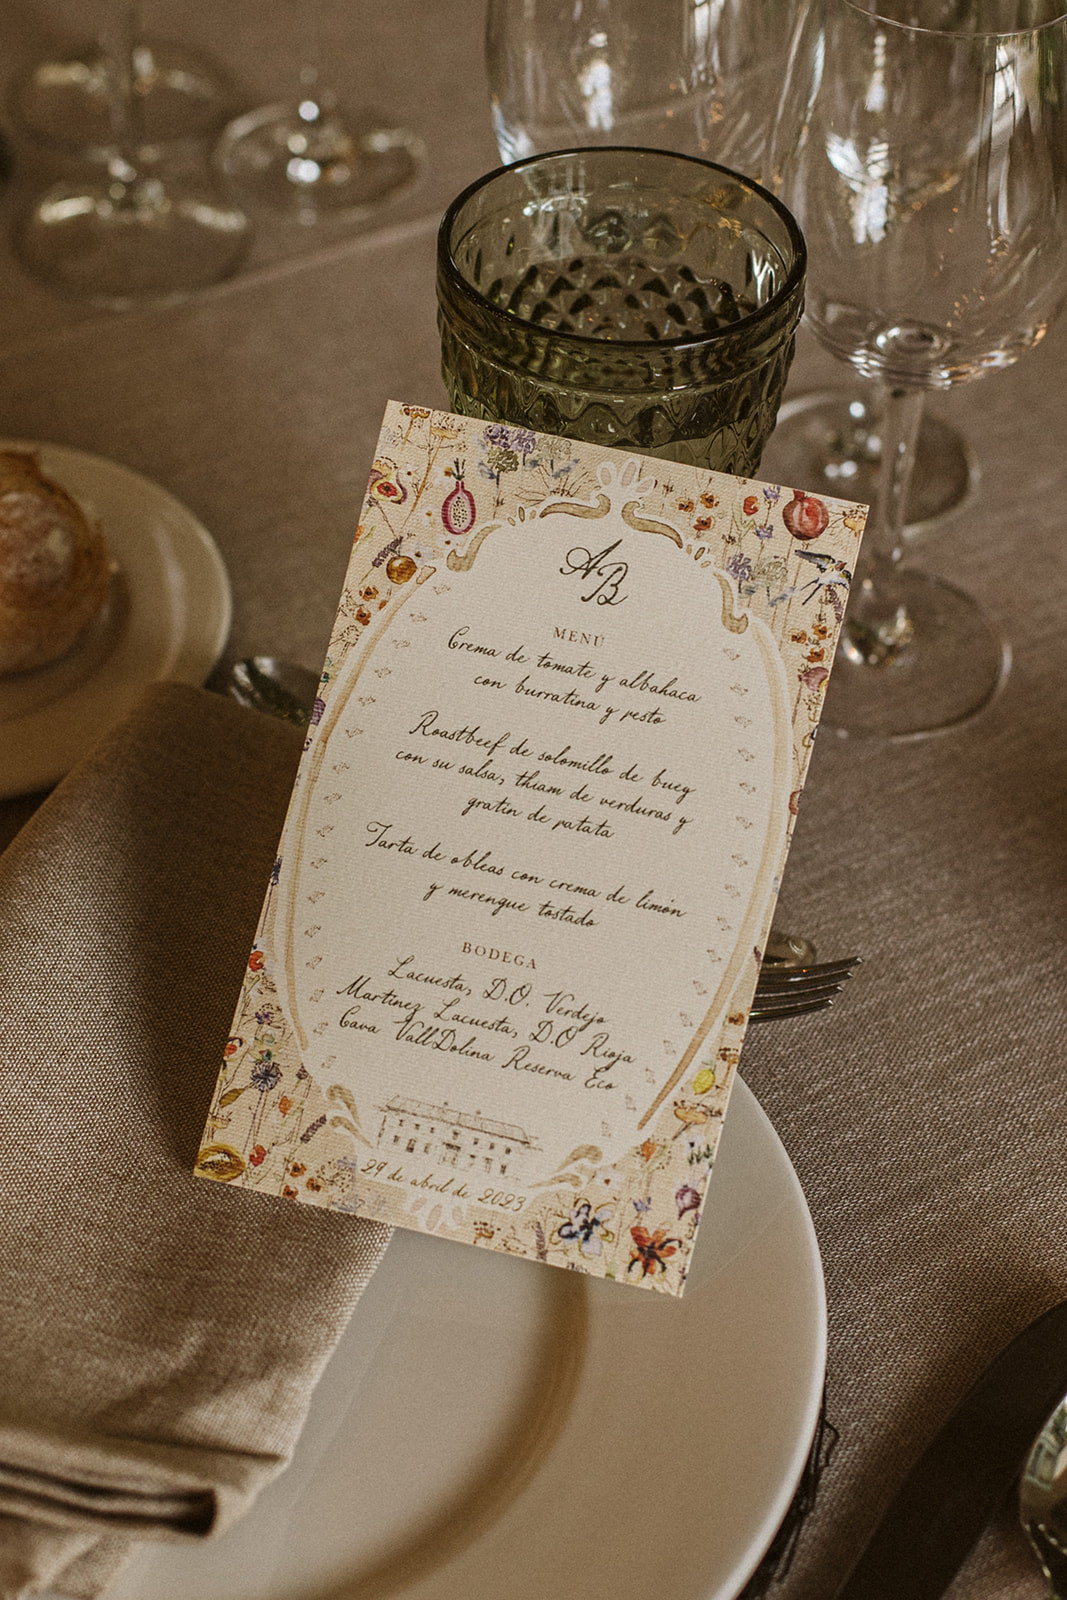 AB
MENÚ
Crema de tomate y albahaca
con burratina y pesto
Roastbeef de solomillo de buey
con su salsa, thiam de verduras y
gratin de patata
Tarta de obleas con crema de limón
y merengue tostado
BODEGA
Lacuesta, D.O. Verdejo
Martinez Lacuesta, D.O Rioja
Cava VallDolina Reserva Eco
29 de abril de 2023